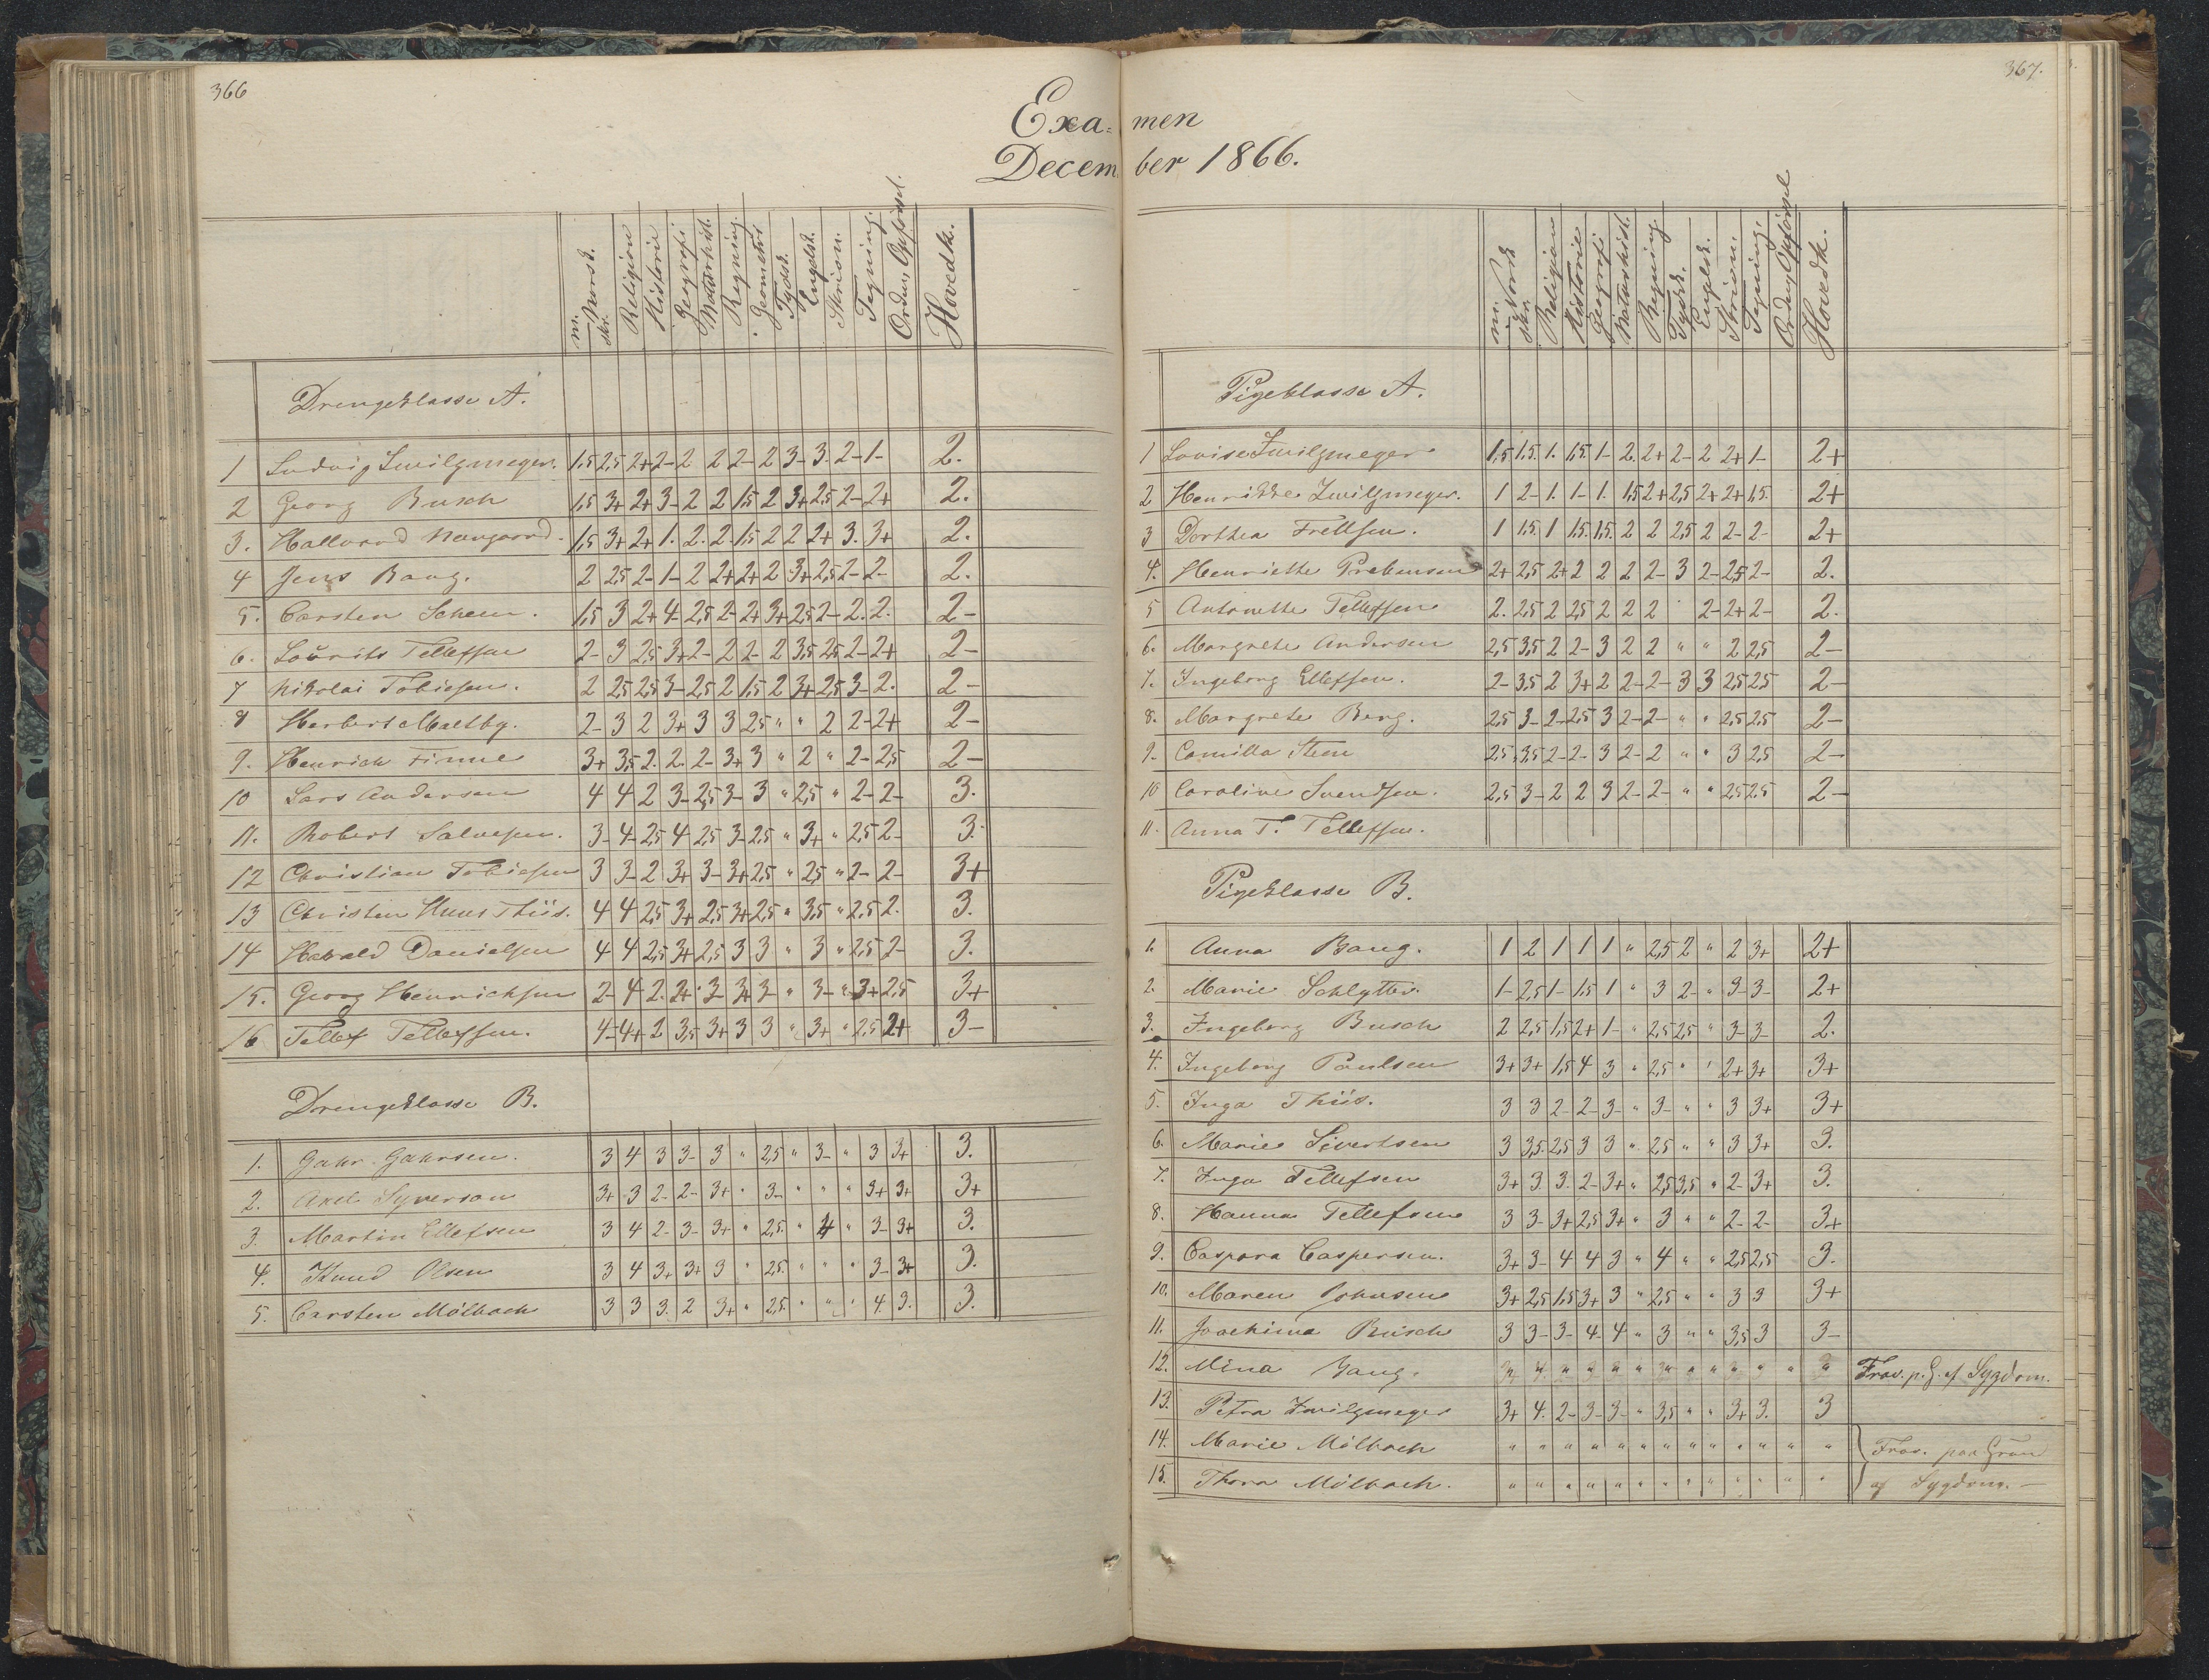 366
Exa=
Decem
m. Norsk. skr. Religion Historie Geografi Naturhist. Regning. Geometri Tydsk. Engelsk. Skrivn. Tegning. Orden, Opførsel. Hovedk.
Drengeklasse A.
1 Ludvig Zwilgmeyer. 1,5 2,5 2+ 2- 2 2 2- 2 3- 3. 2- 1- 2.
2 Georg Busch 1,5 3+ 2+ 3- 2 2 1,5 2 3+ 2,5 2- 2+ 2.
3. Hallvard 1,5 3+ 2+ 1. 2. 2. 1,5 2 2 2+ 3. 3+ 2.
4 Jens Bang. 2 2,5 2- 1- 2 2+ 2+ 2 3+ 2,5 2- 2- 2.
5. Carsten 1,5 3 2+ 4- 2,5 2- 2+ 3+ 2,5 2- 2. 2. 2-
6. Lourits Tellefsen 2- 3 2,5 3+ 2- 2 2- 2 3,5 2,5 2- 2+ 2-
7 Nikolai Tobiesen. 2 2,5 2,5 3- 2,5 2 1,5 2 3+ 2,5 3- 2. 2-
8 Herbert Maltby. 2- 3 2 3+ 3 3 2,5 " " 2 2- 2+ 2-
9. Henrich Finne 3+ 3,5 2. 2. 2- 3+ 3 " 2 " 2- 2,5 2-
10 Lars Andersen 4 4 2 3- 2,5 3- 3 " 2,5 " 2- 2- 3.
11. Robert Salvesen. 3- 4- 2,5 4 2,5 3- 2,5 " 3+ " 2,5 2- 3.
12 Christian Tobiesen 3 3- 2 3+ 3- 3+ 2,5 " 2,5 " 2- 2- 3+
13 Christen Huus Thiis. 4 4 2,5 3+ 2,5 3+ 2,5 " 3,5 " 2,5 2. 3.
14 Harald Danielsen 4 4 2,5 3+ 2,5 3 3 " 3 " 2,5 2- 3.
15. Georg Henrichsen 2- 4 2. 2+ 3- 3+ 3- " 3- " 3+ 2,5 3+
16 Tellef Tellefsen. 4- 4+ 2 3,5 3+ 3 3 " 3+ " 2,5 2+ 3-
Drengeklasse B.
1. Gahr Gahrsen. 3 4 3 3- 3 " 2,5 " 3- " 3 3+ 3.
2. Axel Syverson 3+ 3 2- 2- 3+ " 3- " " " 3+ 3+ 3+
3. Martin Ellefsen 3 4 2- 3- 3+ " 2,5. " 4 " 3- 3+ 3.
4. Knud Olsen 3 4 3+ 3+ 3 " 2,5. " " " 3- 3+ 3.
5. Carsten Mölbach 3 3 3. 2 3+ " 2,5. " " " 4. 3. 3.
367.
men
ber 1866.
m. Norsk skr. Religion Historie Geografi Naturhist. Regning Tydsk. Engelsk. Skrivn. Tegning. Orden, Opførsel Hovedk.
Pigeklasse A.
1 Lovise Zwilgmeyer 1,5 1,5. 1. 1,5. 1- 2. 2+ 2- 2 2+ 1- 2+
2 Henrikke Zwilgmeyer. 1 2- 1. 1- 1. 1,5 2+ 2,5 2+ 2+ 1,5. 2+
3 Dorthea 1 1,5. 1 1,5. 1,5. 2 2 2,5 2 2- 2- 2+
4. Henriette Prebensen 2+ 2,5 2+ 2 2 2 2- 3 2- 2,5 2- 2.
5 Antonette Tellefsen 2. 2,5 2 2,5 2 2 2 2- 2+ 2- 2.
6. Margrete Andersen 2,5 3,5 2 2- 3 2 2 " " 2 2,5 2-
7. Ingeborg Ellefsen. 2- 3,5 2 3+ 2 2- 2- 3 3 2,5 2,5 2-
8. Margrete Berg. 2,5 3- 2- 2,5 3 2- 2- " " 2,5 2,5 2-
9. Camilla Steen 2,5 3,5 2- 2- 3 2- 2 " " 3 2,5 2-
10 Caroline Svendsen. 2,5 3- 2 2 3 2- 2- " " 2,5 2,5 2-
11. Anna T. Tellefsen.
Pigeklasse B.
1. Anna Bang. 1 2 1 1 1 " 2,5 2 " 2 3+ 2+
2. Marie Schlytter. 1- 2,5 1- 1,5 1 " 3 2- " 3- 3- 2+
3. Ingeborg Busch 2 2,5 1,5 2+ 1- " 2,5 2,5 " 3- 3- 2.
4. Ingeborg Paulsen 3+ 3+ 1,5 4 3 " 2,5 " " 2+ 3+ 3+
5. Inga Thiis. 3 3 2- 2- 3- " 3- " " 3 3+ 3+
6. Marie Sivertsen 3 3,5. 2,5 3 3 " 2,5 " " 3 3+ 3.
7. Inga Tellefsen 3+ 3. 3. 2- 3+ " 2,5 3,5 " 2- 3+ 3.
8. Hanna Tellefsen 3 3- 3+ 2,5 3+ " 3 " " 2- 2- 3+
9. Caspara Caspersen. 3+ 3- 4 4 3 " 4 " " 2,5 2,5 3.
10. Maren Johnsen 3+ 2,5 1,5 3+ 3 " 2,5 " " 3 3 3+
11. Joachima Busch 3 3- 3- 4- 4 " 3 " " 3,5 3 3-
12. Mina Bang. " " " " " " " " " " " " " Frav. p. G. af Sygdom.
13. Petra Zwilgmeyer 3+ 4. 2- 3- 3- " 3,5 " " 3+ 3. 3
14. Marie Mölbach " " " " " " " " " " " " " Frav. paa Grun
15. Thora Mölbach. " " " " " " " " " " " " " af Sygdom. -